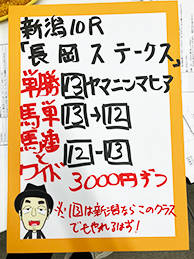 新潟10R
「長岡ステークス」
単勝 13 ヤマニンマヒア
馬単 13→12
馬連
と
ワイド
12-13
3000円ずつ
※13は新潟ならこのクラス
でもやれるはず!